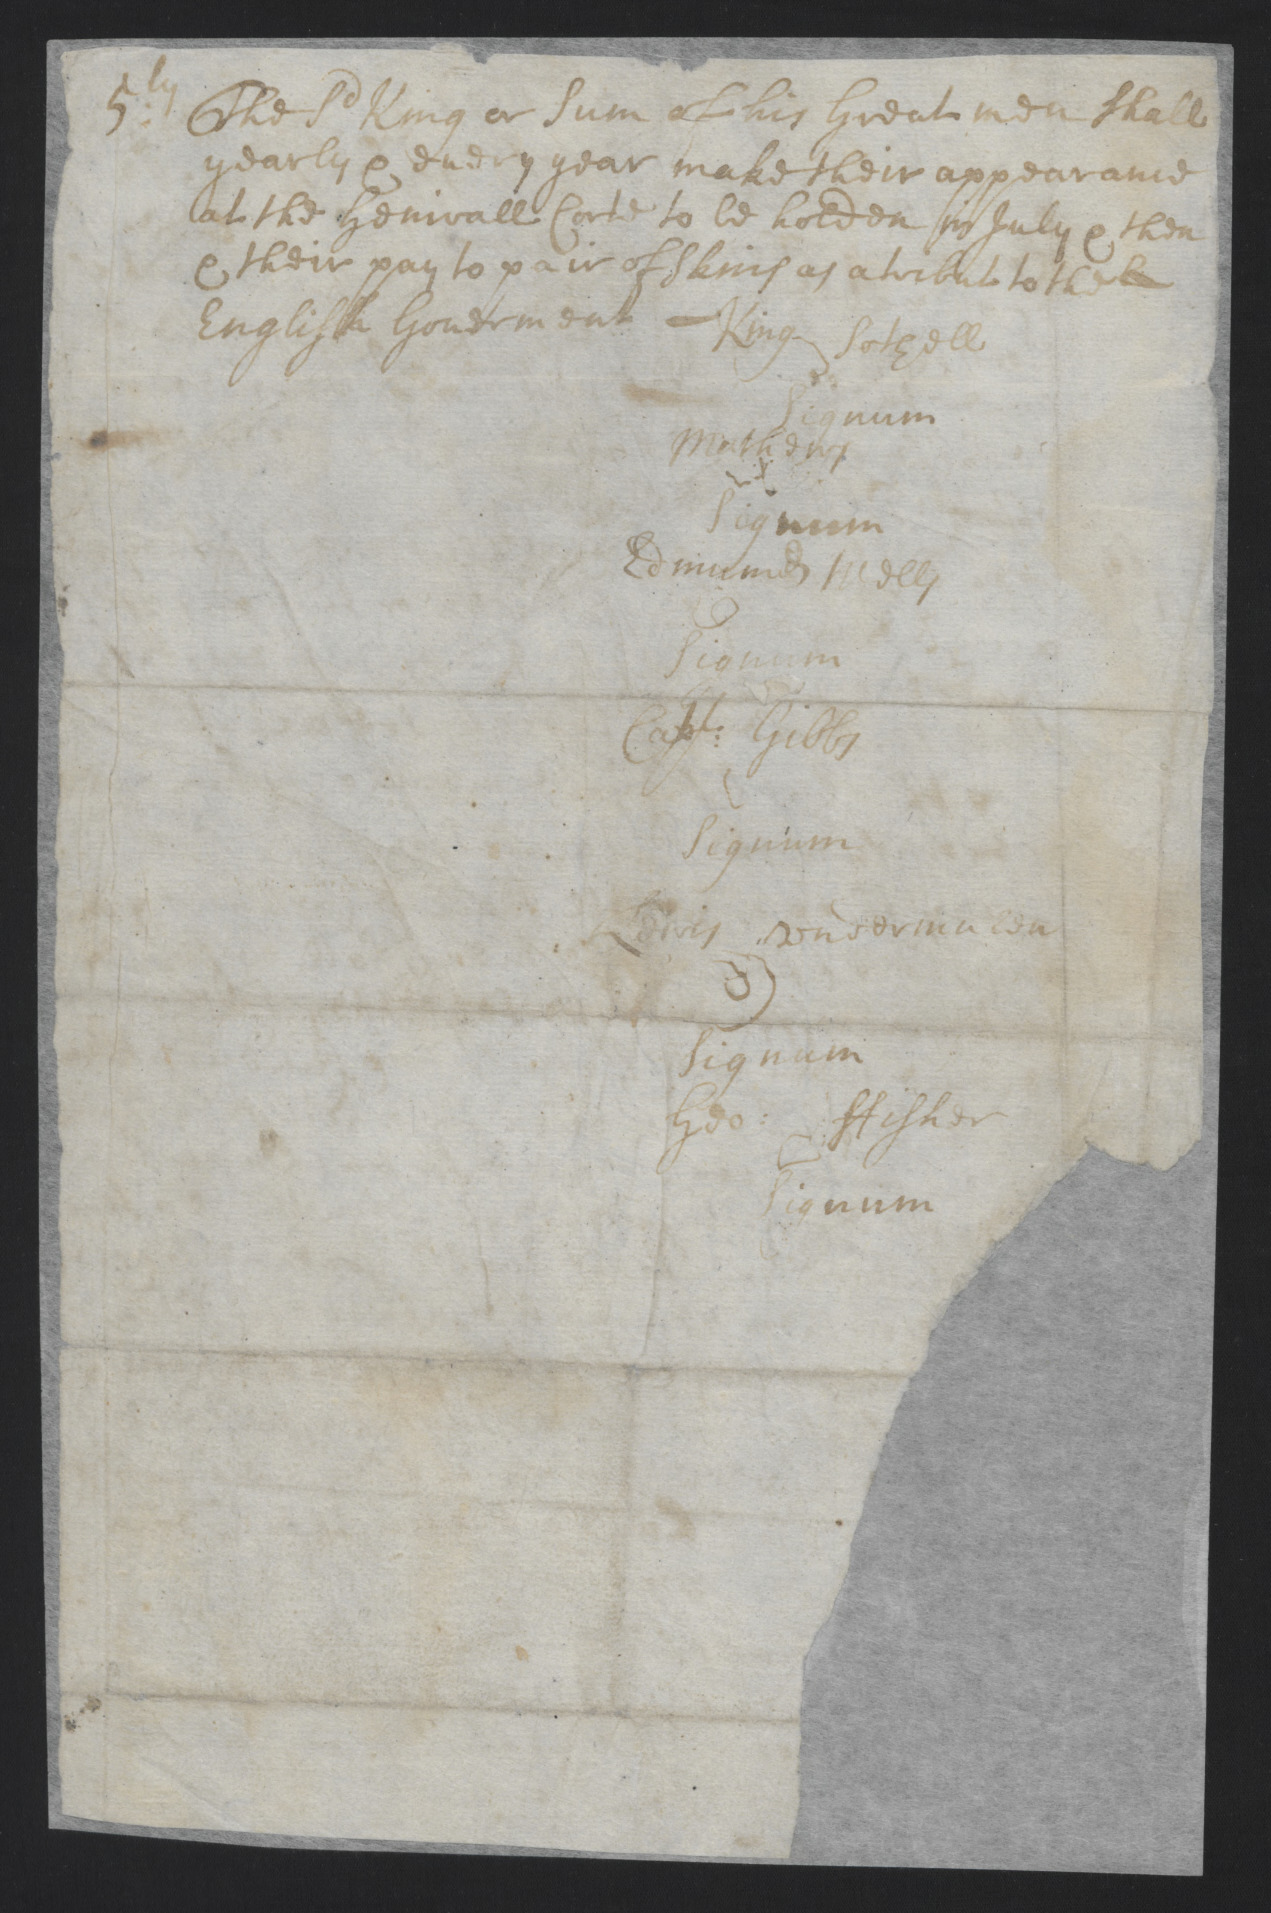 5:ly The Sd King or Sum of his Great men Shall
yearly & euery year make their appearance
at the Generall Corte to be holden in July & then
& their pay to pair of Skins as a tribut to the
English Gouerment — King Sothell
Signum
Mathews
Signum
Edmund Wells
Signum
Capt: Gibbs
Signum
Lewis vndermulen
Signum
Geo: ffisher
Signum